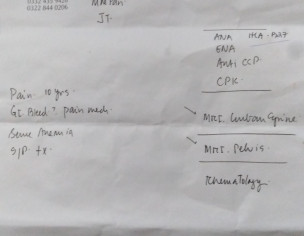 0322 844 0206
JT.
ANA HLA-B27
ENA
Anti CCP
CPK
Pain 10 yrs
GI Bleed pain medi.
MRI Lumbar Spine
MRI Pelvis
S/P tx.
Rhematology